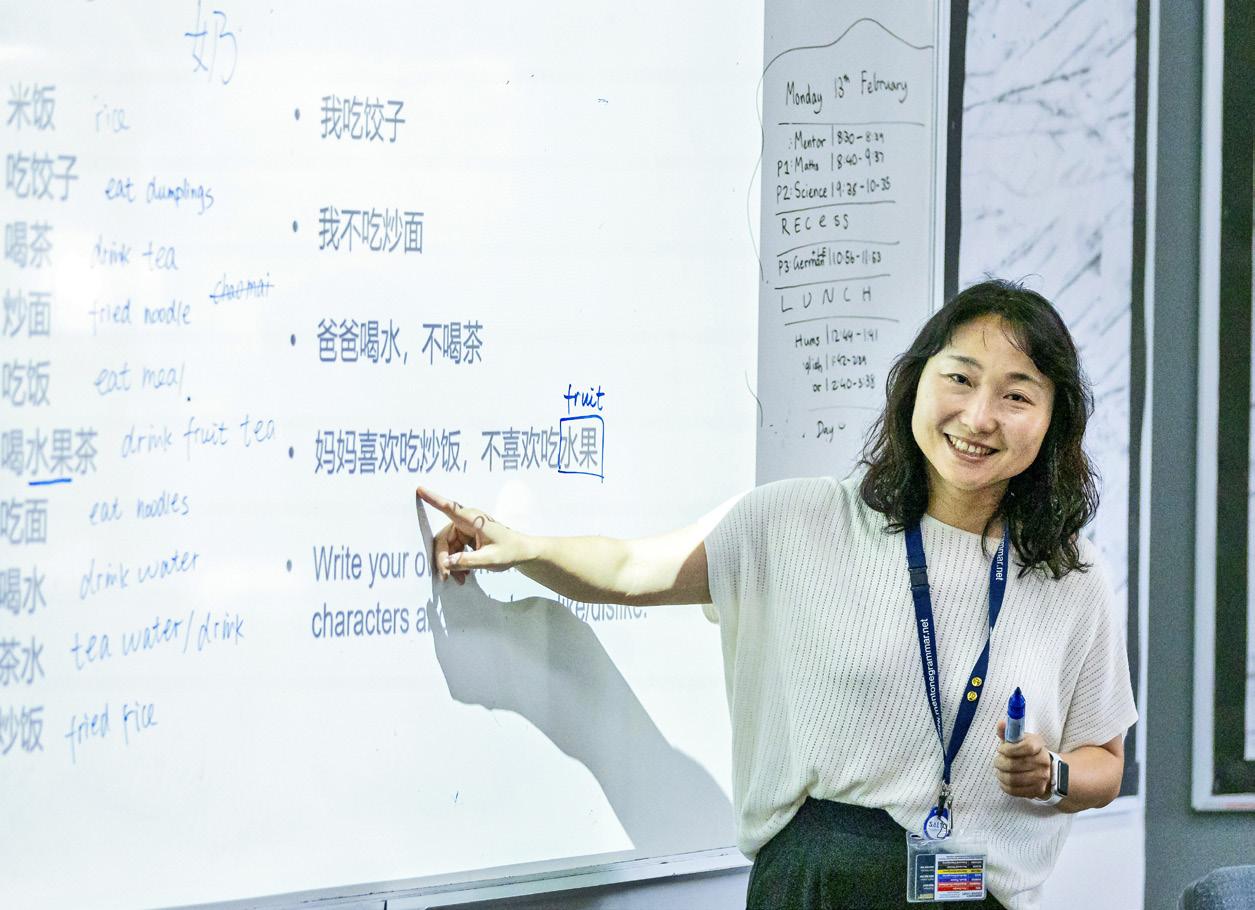 奶
米饭 rice
吃饺子 eat dumplings
喝茶 drink tea
炒面 fried noodle chaomai
吃饭 eat meal
喝水果茶 drink fruit tea
吃面 eat noodles
喝水 drink water
茶水 tea water/drink
炒饭 fried rice
• 我吃饺子
• 我不吃炒面
• 爸爸喝水，不喝茶
fruit
• 妈妈喜欢吃炒饭，不喜欢吃水果
• Write your
characters like/dislike.
Monday 13th February
Mentor | 8:30 -
P1: Maths | 8:40 - 9:37
P2: Science | 9:38 - 10:35
RECESS
P3: German | 10:56 - 11:53
LUNCH
Hums | 12:44 - 1:41
2:40 - 3:38
Day
www.mentonegrammar.net
mar.net